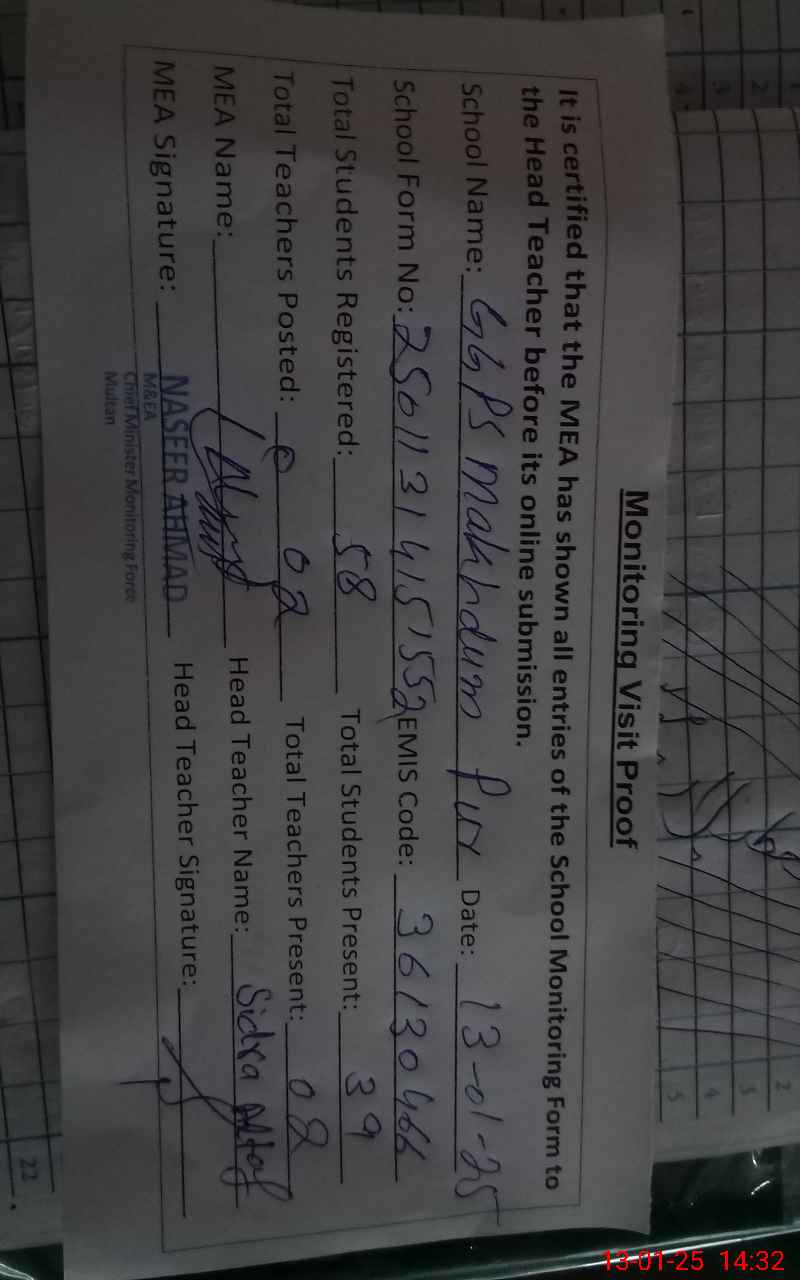 Monitoring Visit Proof
It is certified that the MEA has shown all entries of the School Monitoring Form to
the Head Teacher before its online submission.
School Name: GGPS Makhdum Pur Date: 13-01-25
School Form No: 25011314151552 EMIS Code: 36130466
Total Students Registered: 58 Total Students Present: 39
Total Teachers Posted: 02 Total Teachers Present: 02
MEA Name: Head Teacher Name: Sidra Altaf
MEA Signature: NASEER AHMAD Head Teacher Signature:
M&EA
Chief Minister Monitoring Force
Multan
1
2
3
4
2
3
4
5
22
13-01-25 14:32